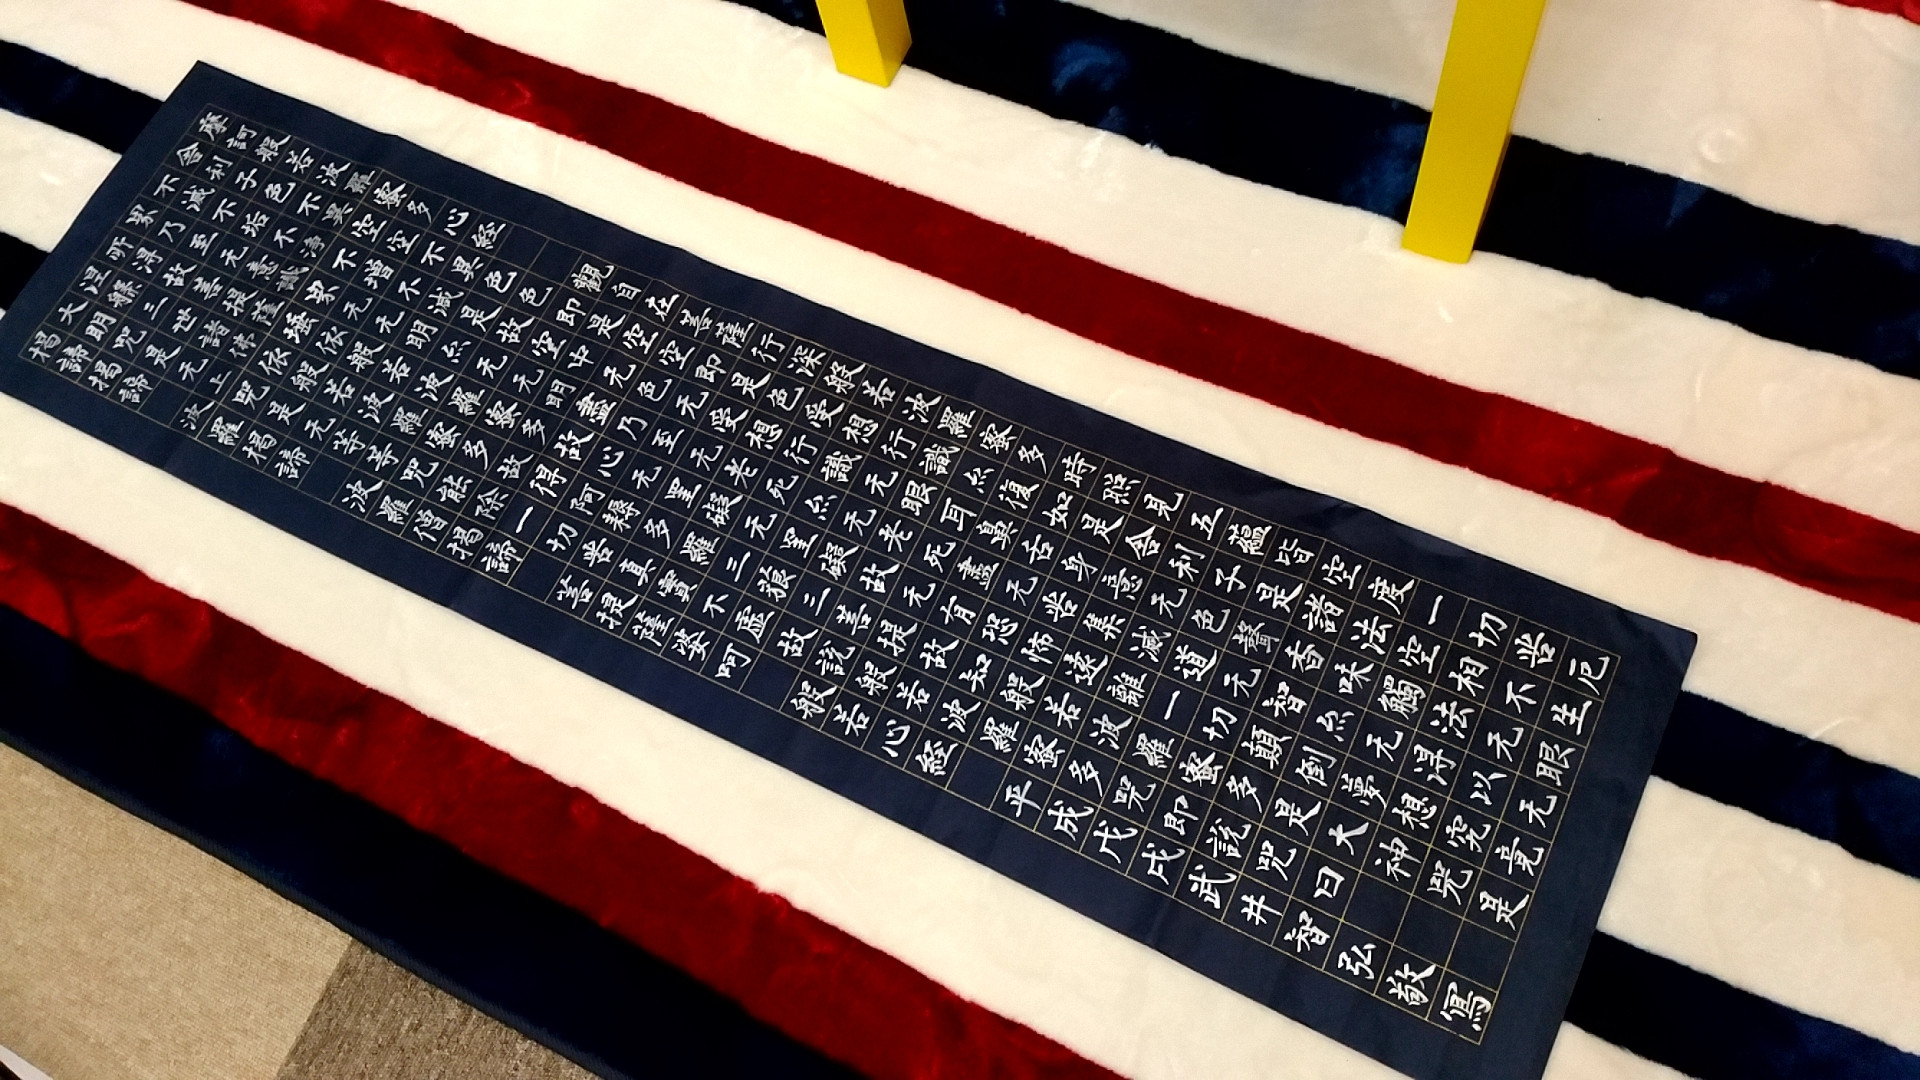 摩訶般若波羅蜜多心経 觀自在菩薩行深般若波羅蜜多時照見五蘊皆空度一切苦厄
舍利子色不異空空不異色色即是空空即是色受想行識亦復如是舍利子是諸法空相不生
不滅不垢不浄不增不減是故空中无色无受想行識无眼耳鼻舌身意无色聲香味觸法无眼
界乃至无意識界无无明亦无无明盡乃至无老死亦无老死盡无苦集滅道无智亦无得以无
所得故菩提薩埵依般若波羅蜜多故心无罣礙罣礙故无有恐怖遠離一切顛倒夢想究竟
涅槃三世諸佛依般若波羅蜜多故得阿耨多羅三藐三菩提故知般若波羅蜜多是大神咒是
大明咒是无上咒是无等等咒能除一切苦真實不虛故説般若波羅蜜多咒即説咒曰
揭諦揭諦 波羅揭諦 波羅僧揭諦 菩提薩婆呵 般若心経 平成戊戌武井智弘敬寫